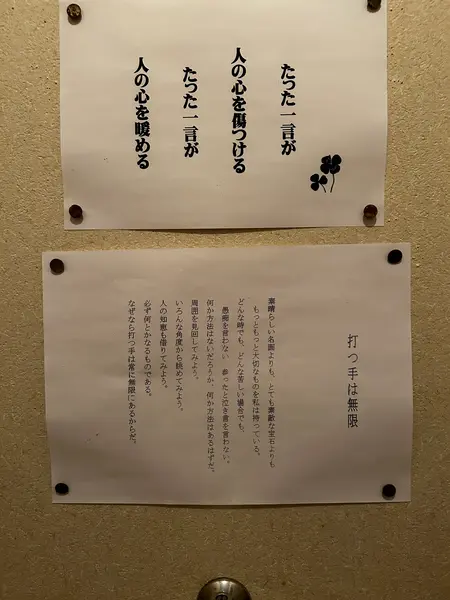 たった一言が
人の心を傷つける
たった一言が
人の心を暖める
打つ手は無限
素晴らしい名画よりも、とても素敵な宝石よりも
もっともっと大切なものを私は持っている。
どんな時でも、どんな苦しい場合でも、
愚痴を言わない。参ったと泣き言を言わない。
何か方法はないだろうか、何か方法はあるはずだ。
周囲を見回してみよう。
いろんな角度から眺めてみよう。
人の知恵も借りてみよう。
必ず何とかなるものである。
なぜなら打つ手は常に無限にあるからだ。